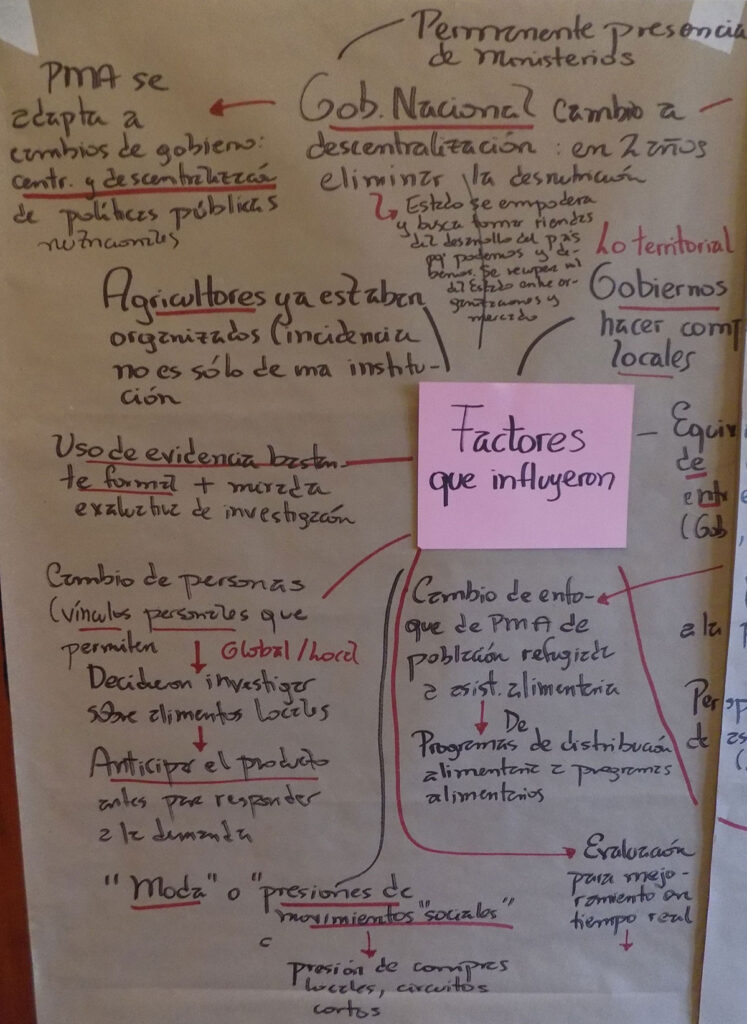 Permanente presencia
de ministerios
PMA se
adapta a
cambios de gobierno:
centr. y descentralización
de políticas públicas
nutricionales
Gob. Nacional cambio a
descentralización: en 2 años
eliminar la desnutrición
Estado se empodera
y busca tomar riendas
del desarrollo del país
pq' podemos y de-
bemos. Se recupera rol
del Estado entre or-
ganizaciones y
mercado
Lo territorial
Gobiernos
hacer comp
locales
Agricultores ya estaban
organizados (incidencia
no es sólo de una institu-
ción
Factores
que influyeron
Uso de evidencia bastan-
te formal + mirada
evaluativa de investigación
Equi
de
entr
(Gob
Cambio de personas
(vínculos personales que
permiten
Global/Local
Decidieron investigar
sobre alimentos locales
Anticipar el producto
antes para responder
a la demanda
Cambio de enfo-
que de PMA de
población refugiada
a asist. alimentaria
De
Programas de distribución
alimentaria a programas
alimentarios
a la
Per
de
"Moda" o "presiones de
movimientos "sociales"
presión de compras
locales, circuitos
cortos
Evaluación
para mejo-
ramiento en
tiempo real